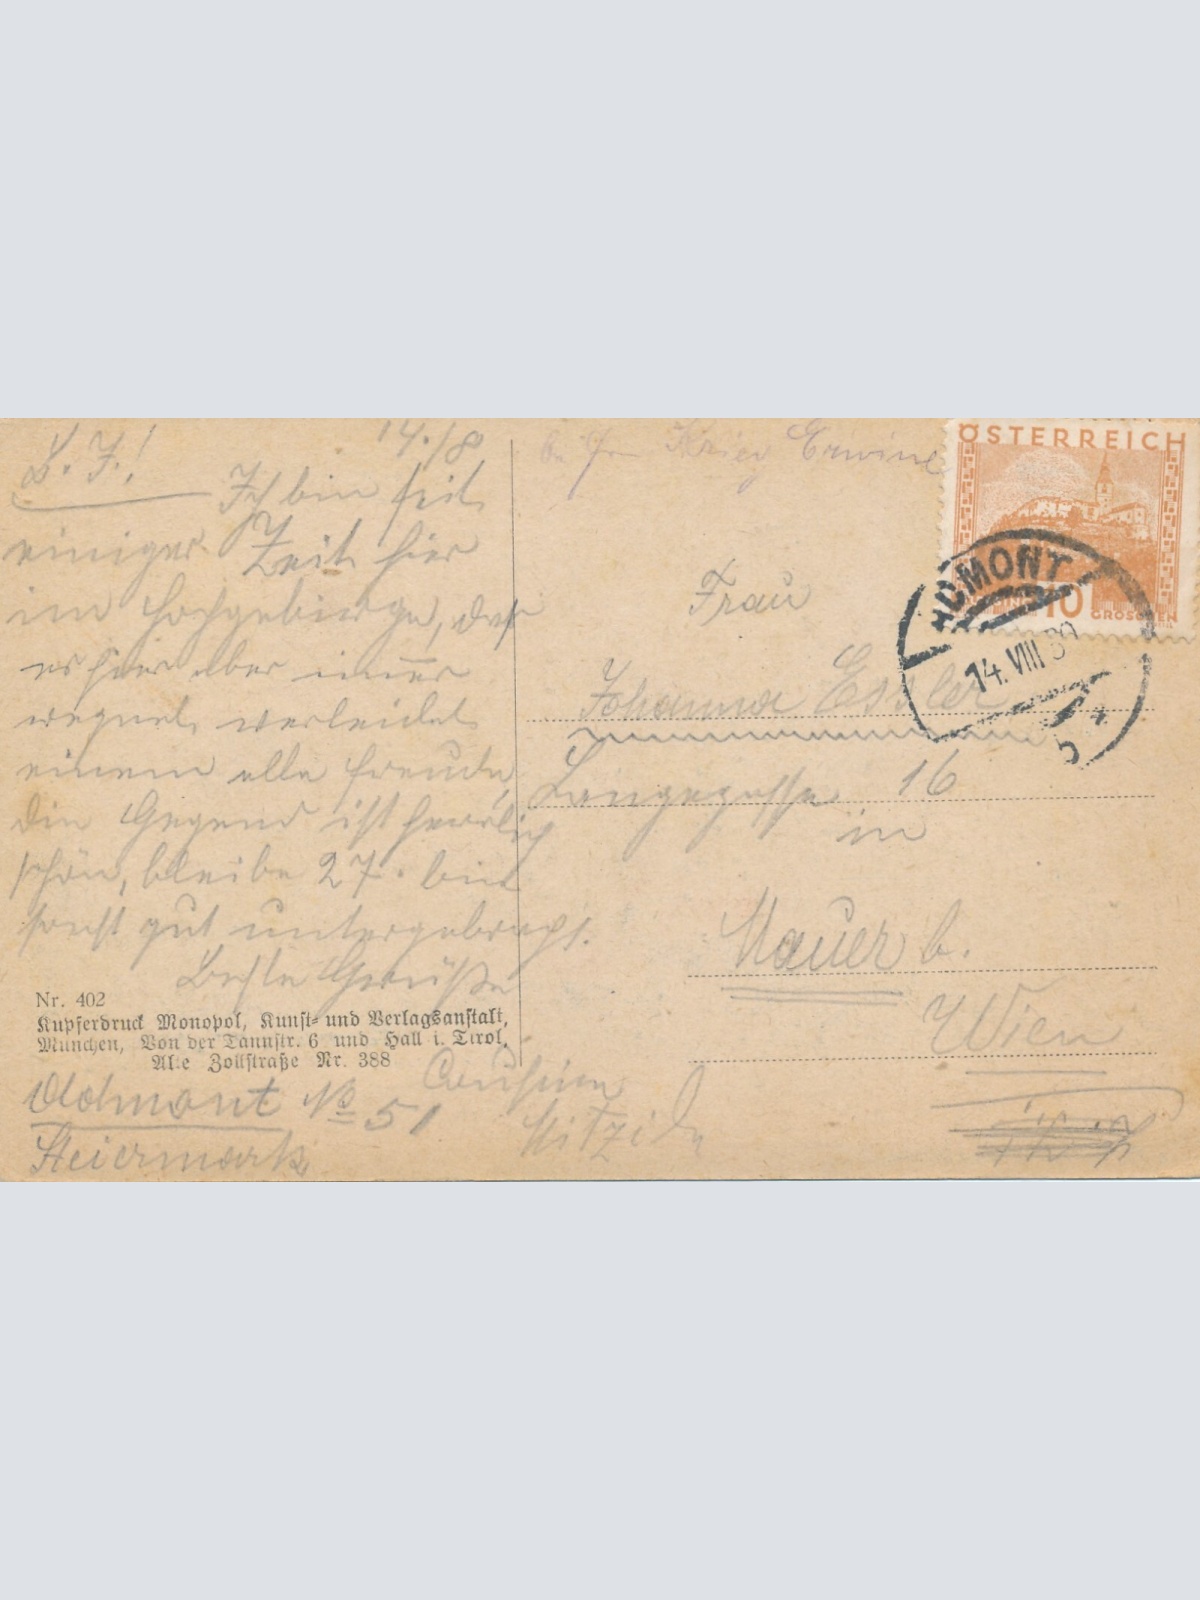 L. J.! 14./8
Ich bin seit
einiger Zeit hier
im Hochgebirge, daß
es hier aber immer
regnet verleidet
einem alle Freude,
die Gegend ist herrlich
schön, bleibe 27. bin
sonst gut untergebracht.
Beste Grüße
Nr. 402
Kupferdruck Monopol, Kunst- und Verlagsanstalt,
München, Von der Tannstr. 6 und Hall i. Tirol,
Alte Zollstraße Nr. 388
Cousine
Mitzi
Admont No 51
Steiermark
Krieg Erwine
Frau
Johanna Essler
Langegasse 16
in
Mauer b.
Wien
ÖSTERREICH
10
GROSCHEN
ADMONT
14. VIII 30